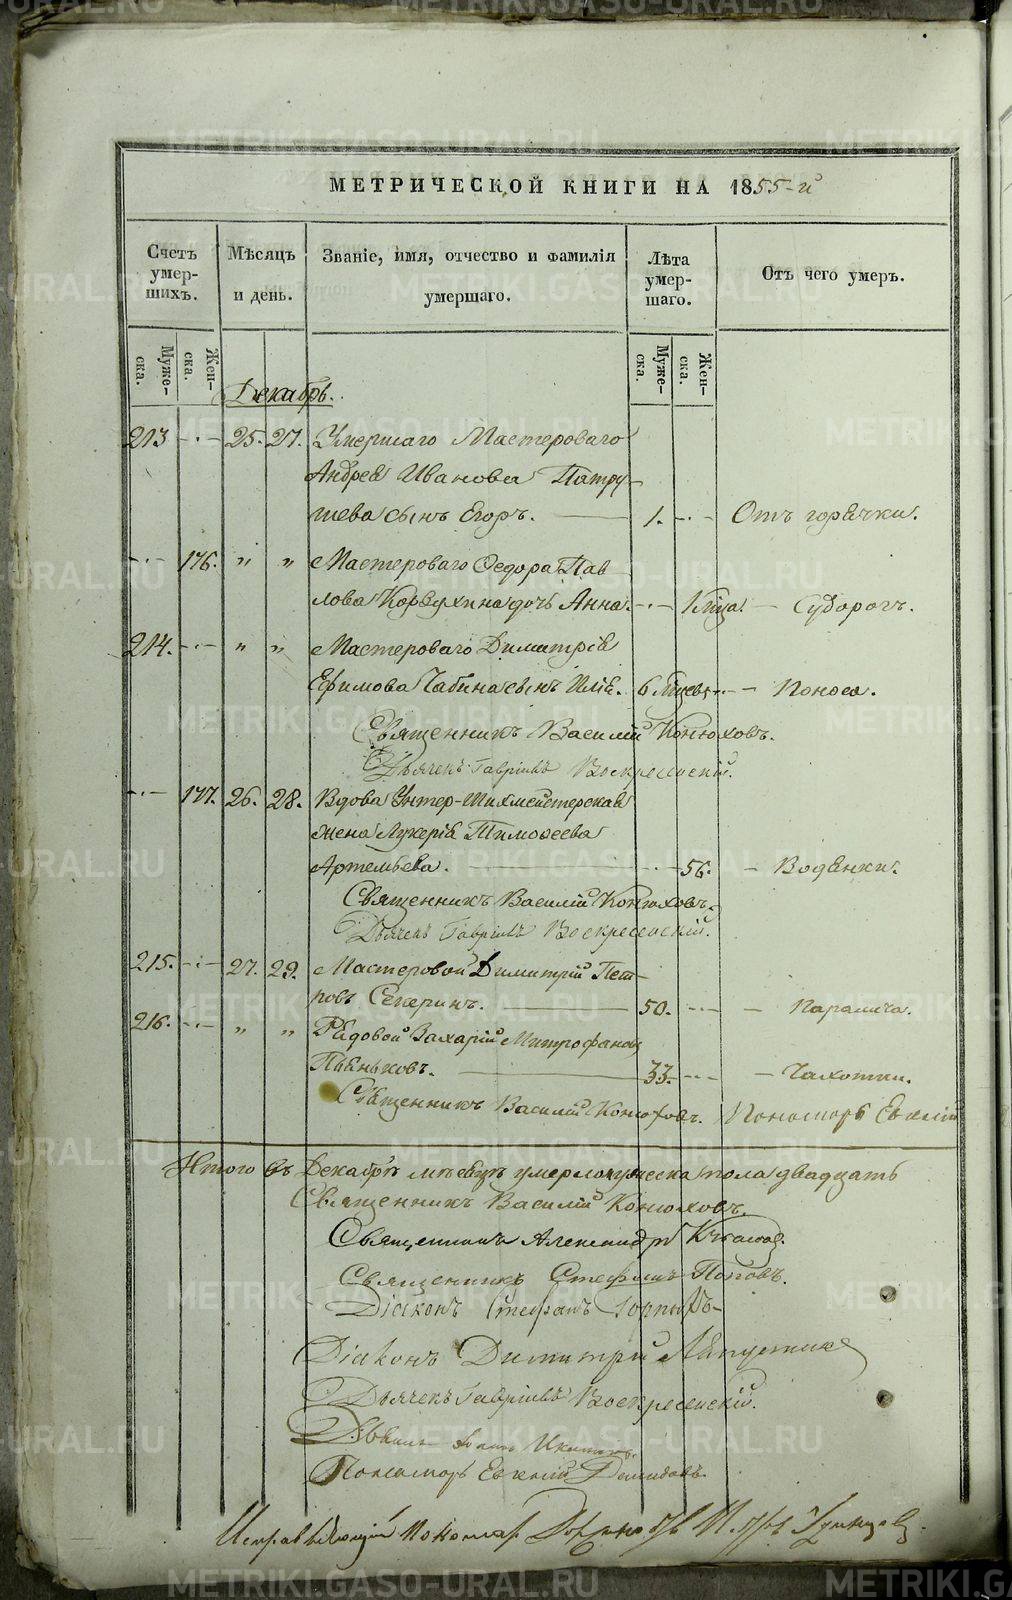 МЕТРИЧЕСКОЙ КНИГИ НА 1855-й
Счетъ умер-шихъ. Мѣсяцъ и день. Званіе, имя, отчество и фамилія умершаго. Лѣта умер-шаго. Отъ чего умеръ.
Муже-ска. Жен-ска. Муже-ска. Жен-ска.
Декабрь.
213 25. 27. Умершаго Мастероваго
Андрея Иванова Патру-
шева сынъ Егоръ. 1. Отъ горячки.
176. " " Мастероваго Ѳедора Пав
лова дочь Анна. Судорогъ.
214. " " Мастероваго Димитрія
Ефимова сынъ Илія. 6 Поноса.
Священникъ Василій Конюховъ.
Дьячекъ Гавріилъ Воскресенскій.
177. 26. 28. Вдова Унтер-Шихмейстерская
жена Лукерія Тимоѳеева
Артемьева. 56. Водянки.
Священникъ Василій Конюховъ.
Дьячекъ Гавріилъ Воскресенскій.
215. 27. 29. Мастеровой Димитрій Пет-
ровъ Секеринъ. 50. Паралича.
216. " " Рядовой Захарій Митрофановъ
Пьяньковъ. 33. Чахотки.
Священникъ Василій Конюховъ. Пономарь Евгеній
Итого въ Декабрѣ мѣсяцѣ умерло мужеска пола двадцать
Священникъ Василій Конюховъ.
Священникъ Александръ
Священникъ Стефанъ Поповъ.
Діаконъ Стефанъ
Діаконъ Димитрій
Дьячекъ Гавріилъ Воскресенскій.
Пономарь Евгеній Демидовъ.
Исправляющій
METRIKI.GASO-URAL.RU